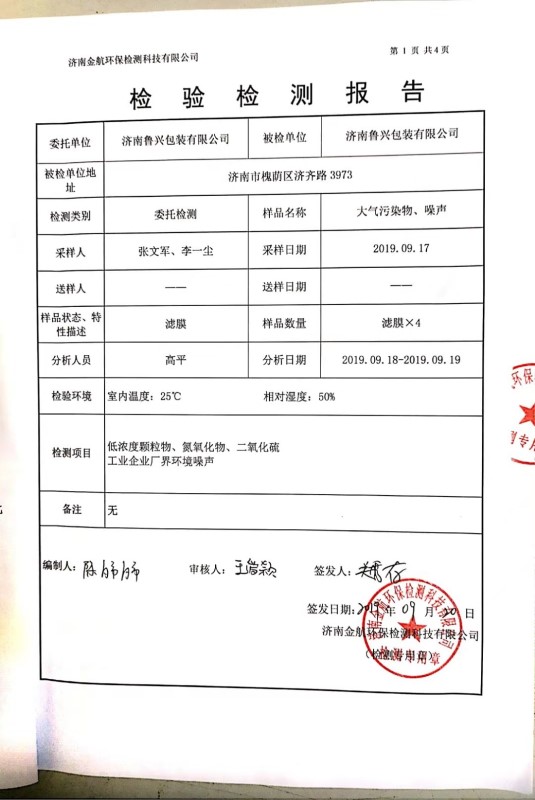 济南金航环保检测科技有限公司 第 1 页 共4页
检验检测报告
委托单位 济南鲁兴包装有限公司 被检单位 济南鲁兴包装有限公司
被检单位地
址
济南市槐荫区济齐路 3973
检测类别 委托检测 样品名称 大气污染物、噪声
采样人 张文军、李一尘 采样日期 2019.09.17
送样人 —— 送样日期 ——
样品状态、特
性描述
滤膜 样品数量 滤膜×4
分析人员 高平 分析日期 2019.09.18-2019.09.19
检验环境 室内温度：25℃ 相对湿度：50%
检测项目
低浓度颗粒物、氮氧化物、二氧化硫
工业企业厂界环境噪声
备注 无
编制人： 审核人： 签发人：
签发日期：2019 年 09 月 20 日
济南金航环保检测科技有限公司
（检测专用章）
济南金航环保检测科技有限公司
检测专用章
环保
专用